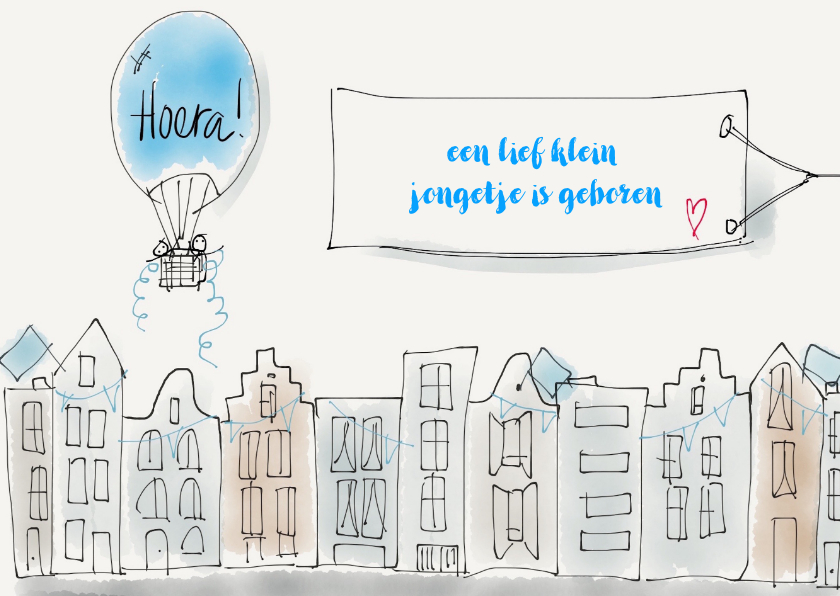 Hoera!
een lief klein
jongetje is geboren